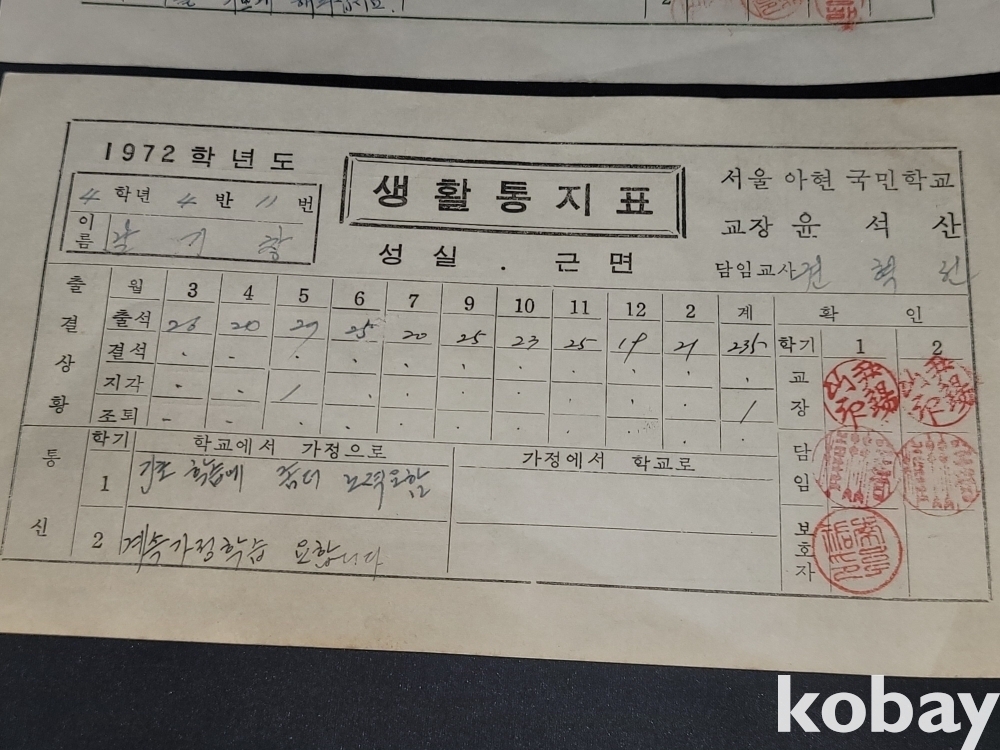 1972 학년도
4 학년 4 반 11 번
이름 기
생활통지표
성실 . 근면
서울 아현 국민학교
교장 윤 석 산
담임교사
출결상황
월 3 4 5 6 7 9 10 11 12 2 계
출석 26 20 27 25 20 25 23 25 19 21 235
결석 . - . . . . . . . . .
지각 . . / . . . . . . . /
조퇴 - - . . . . . . . .
확인
학기 1 2
교장
담임
보호자
통신
학기 학교에서 가정으로 가정에서 학교로
1 기초 학습에 좀더 노력요함
2 계속가정학습 요합니다
kobay